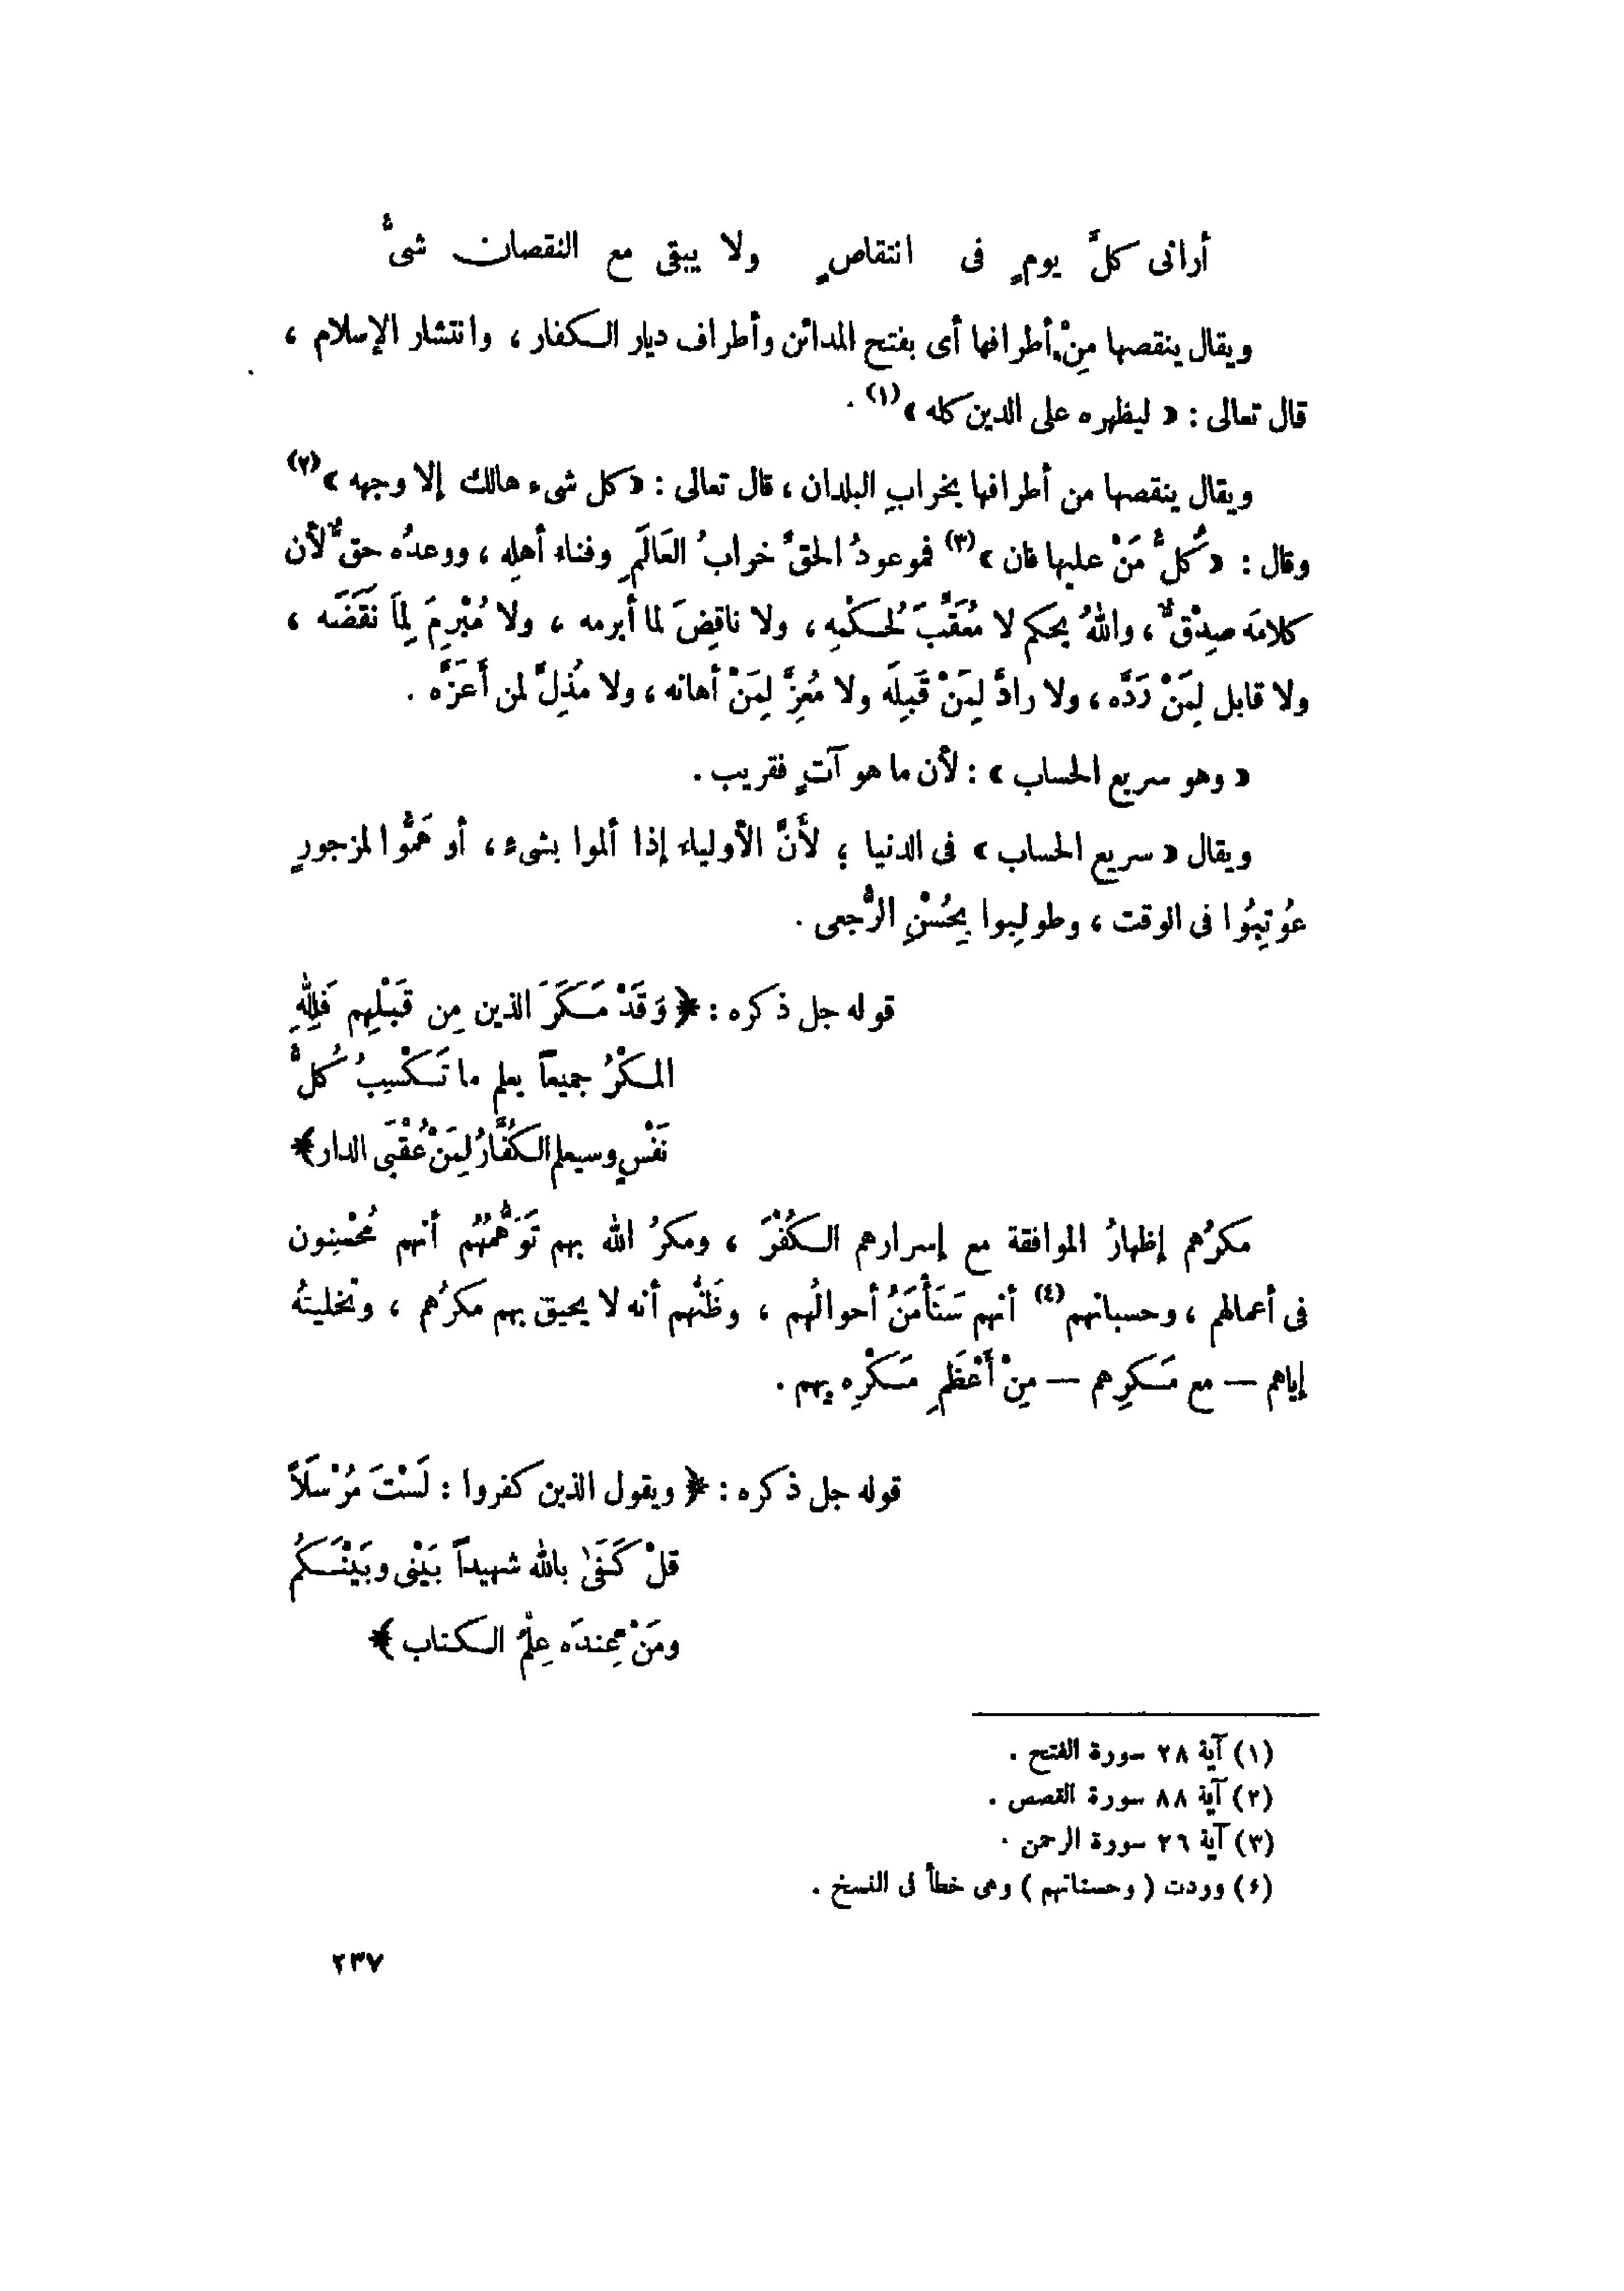 أرانى كلَّ يومٍ فى انتقاصٍ ولا يبقى مع النقصان شىُّ
ويقال ينقصها مِنْ أطرافها أى بفتح المدائن وأطراف ديار الكفار ، وانتشار الإسلام ،
قال تعالى : « ليظهره على الدين كله »(١) .
ويقال ينقصها من أطرافها بخرابِ البلدان ، قال تعالى : « كل شىء هالك إلا وجهه »(٢)
وقال : « كُلُّ مَنْ عليها فان »(٣) فموعودُ الحقِّ خرابُ العَالَمِ وفناء أهلِه ، ووعدُه حقٌّ لأن
كلامَه صِدْقٌ ، واللهُ يحكم لا مُعَقِّبَ لُحكْمِه ، ولا ناقِضَ لما أبرمه ، ولا مُبْرِمَ لِمَا نَقَضَه ،
ولا قابل لِمَنْ رَدَّه ، ولا رادَّ لِمَنْ قَبِلَه ولا مُعِزَّ لِمَنْ أهانه ، ولا مُذِلَّ لمن أَعَزَّه .
« وهو سريع الحساب » : لأن ما هو آتٍ فقريب .
ويقال « سريع الحساب » فى الدنيا ؛ لأَنَّ الأولياء إذا ألموا بشىءٍ ، أو هَمُّوا لمزجورٍ
عُوتِبُوا فى الوقت ، وطولِبوا بِحُسْنِ الرُّجعى .
قوله جل ذكره : ﴿ وَقَدْ مَكَرَ الذين مِن قَبْلِهِم فَلِلَّهِ
المكْرُ جميعاً يعلم ما تَكْسِبُ كُلُّ
نَفْسٍ وسيعلم الكُفَّارُ لِمَنْ عُقْبَى الدار﴾
مكرُهم إظهارُ الموافقة مع إسرارهم الكُفْرَ ، ومكرُ الله بهم تَوَهُّمُهُم أنهم مُحْسِنون
فى أعمالهم ، وحسبانهم(٤) أنهم سَتَأْمَنُ أحوالُهم ، وظَنُّهم أنه لا يحيق بهم مكرُهم ، وتخليتُه
إياهم — مع مَكرِهم — مِنْ أَعْظَمِ مَكْرِه بِهم .
قوله جل ذكره : ﴿ ويقول الذين كفروا : لَسْتَ مُرْسَلَاً
قلْ كَفَىٰ بالله شهيداً بَيْنِى وبَيْنَكُم
ومَنْ عِندَه عِلْمُ الكتاب ﴾
(١) آية ٢٨ سورة الفتح .
(٢) آية ٨٨ سورة القصص .
(٣) آية ٢٦ سورة الرحمن .
(٤) ووردت ( وحسناتهم ) وهى خطأ فى النسخ .
٢٣٧